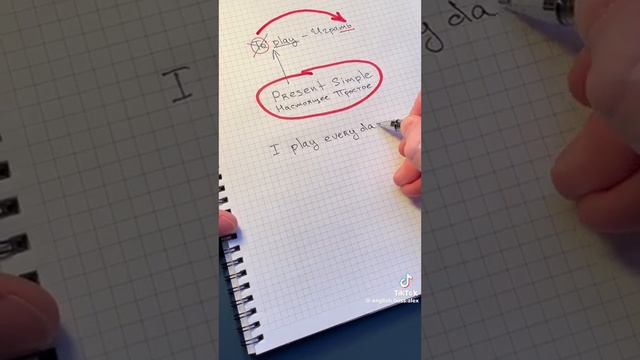 To play - Играть
Present Simple
Настоящее Простое
I play every da
TikTok
@english.boss.alex
I
y da